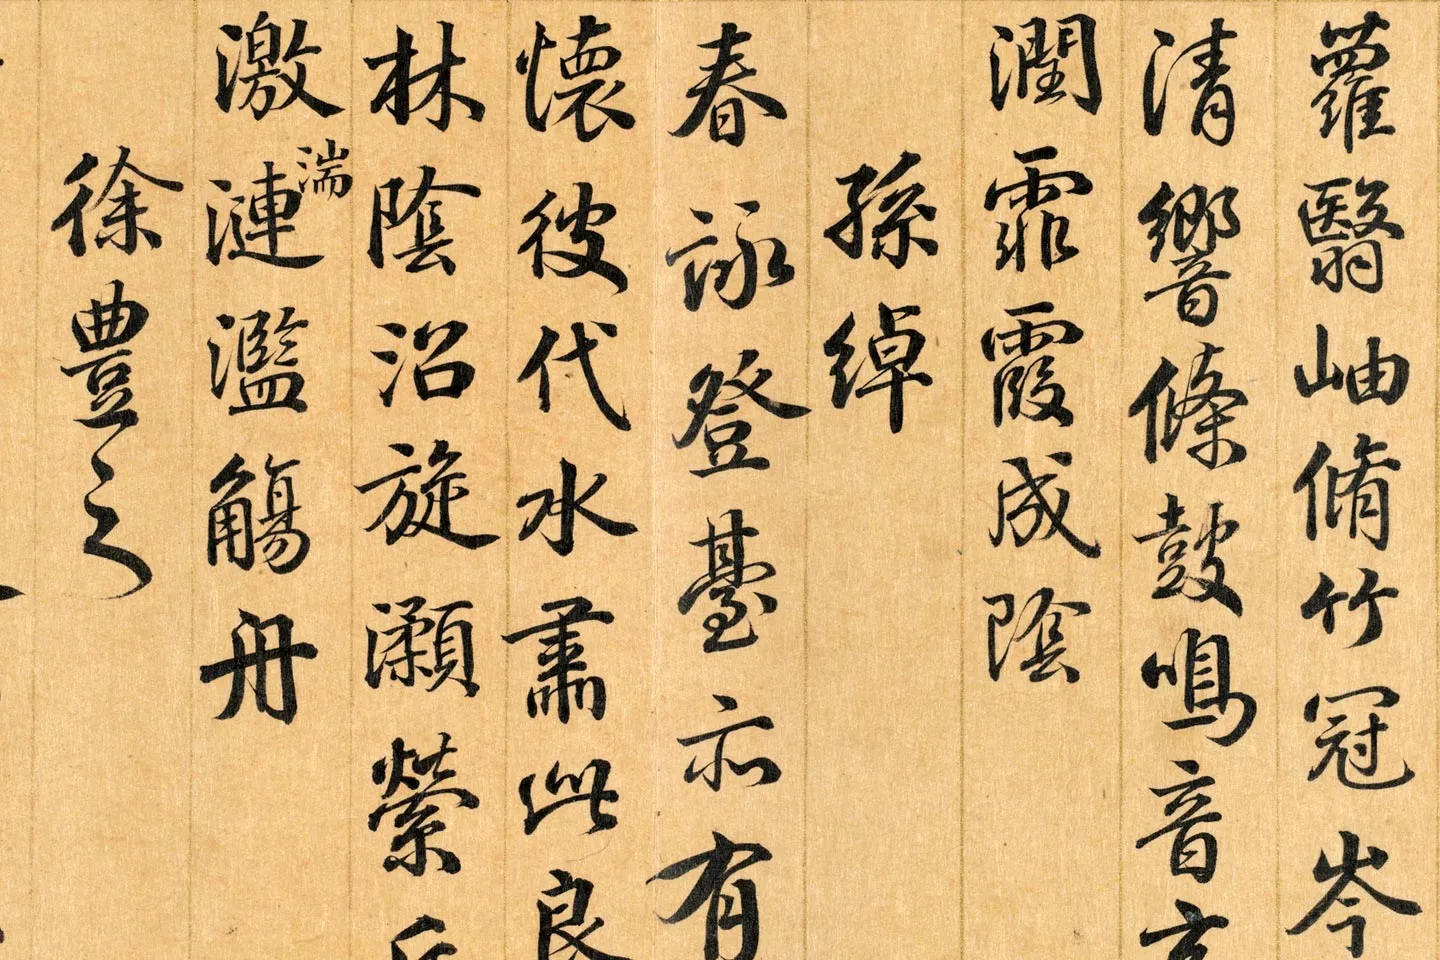 蘿翳岫脩竹冠岑
清響條鼓鳴音玄
潤霏霞成陰
孫綽
春詠登臺亦有
懷彼代水肅此良
林陰沼旋瀨縈丘
激湍漣濫觴舟
徐豊之